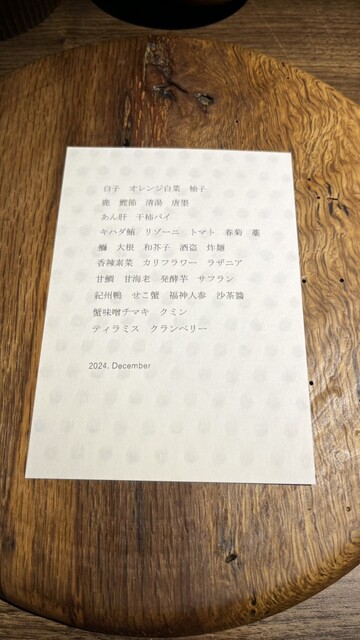 白子　オレンジ白菜　柚子
鹿　鰹節　清湯　唐墨
あん肝　干柿パイ
キハダ鮪　リゾーニ　トマト　春菊　藁
鰤　大根　和芥子　酒盗　炸麺
香辣素菜　カリフラワー　ラザニア
甘鯛　甘海老　発酵芋　サフラン
紀州鴨　せこ蟹　福神人参　沙茶醬
蟹味噌チマキ　クミン
ティラミス　クランベリー
2024, December